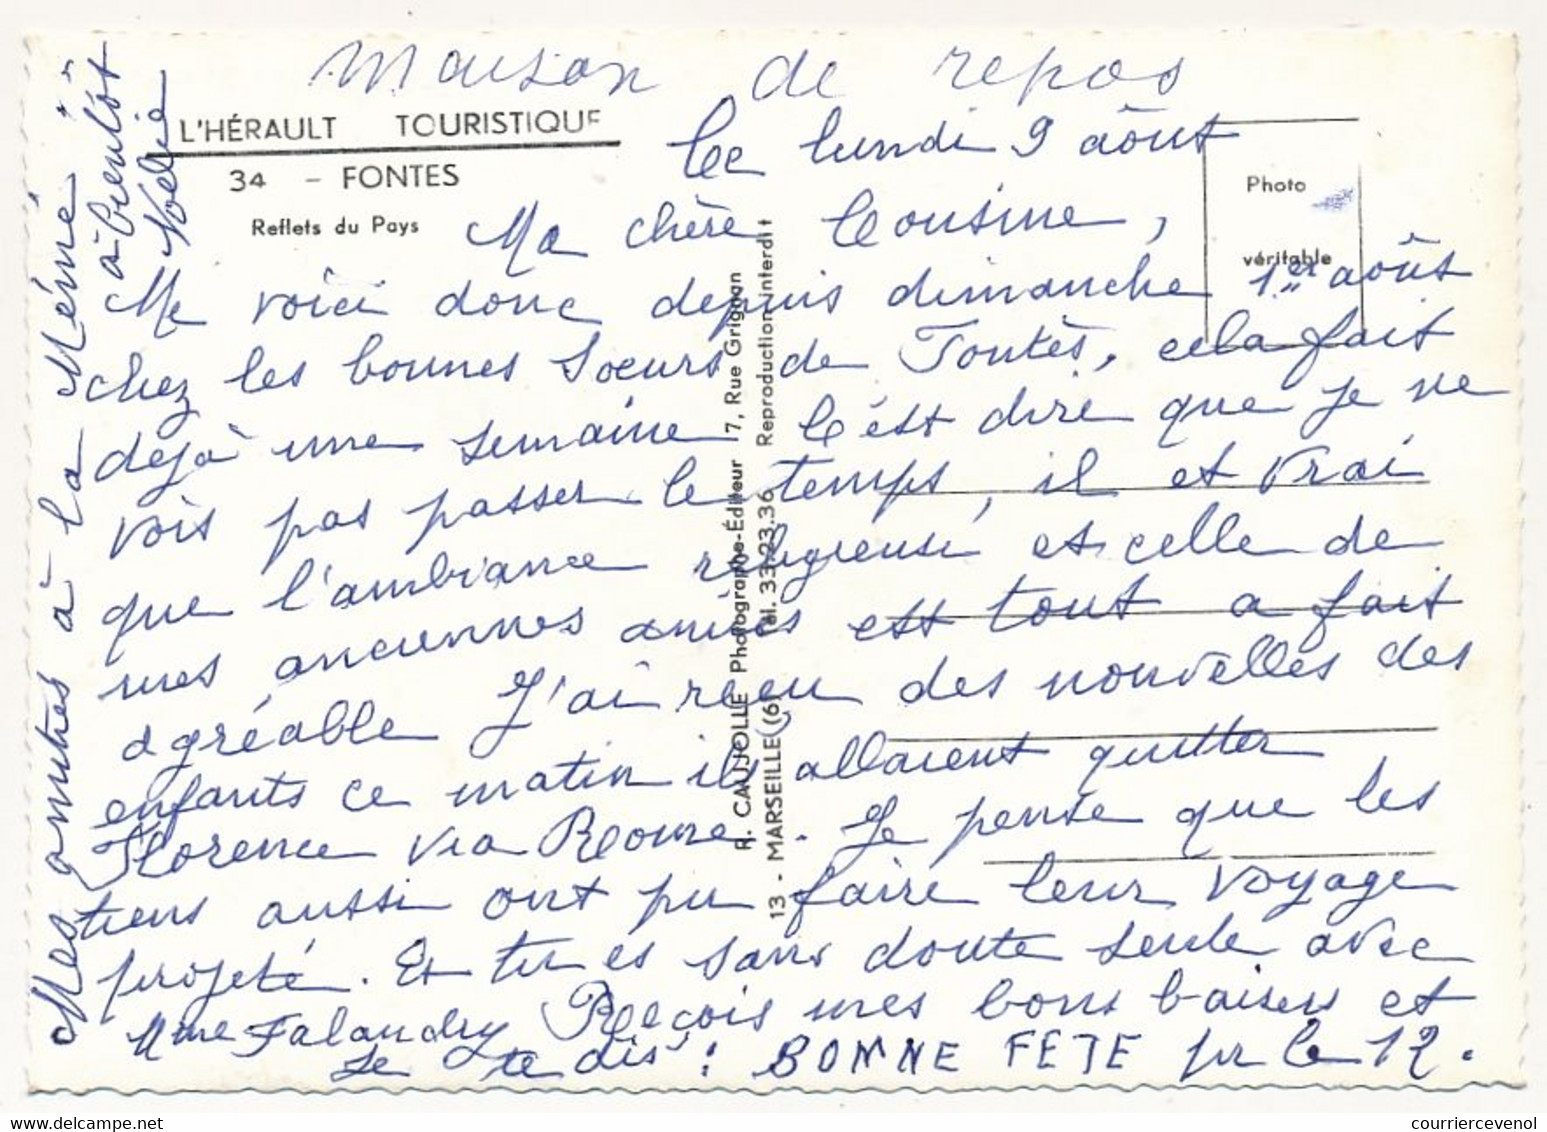 Maison de repos
L'HÉRAULT TOURISTIQUE
34 - FONTES
Reflets du Pays
Photo
véritable
Le lundi 9 août
Ma chère Cousine,
Me voici donc depuis dimanche 1er août
chez les bonnes Soeurs de Fontès, cela fait
déjà une semaine. C'est dire que je ne
vois pas passer le temps, il est vrai
que l'ambiance religieuse et celle de
mes anciennes amies est tout a fait
agréable J'ai reçu des nouvelles des
enfants ce matin ils allaient quitter
Florence via Rome. Je pense que les
tiens aussi ont pu faire leur voyage
projeté. Et tu es sans doute seule avec
Mme Falandry Reçois mes bons baisers et
je te dis : BONNE FETE pr le 12.
Mes amitiés à la Mémé
à bientôt
R. CAUJOLLE Photographe-Éditeur 7, Rue Grignan
13 - MARSEILLE (6e) Tél. 33.23.36 Reproduction interdit
courriercevenol